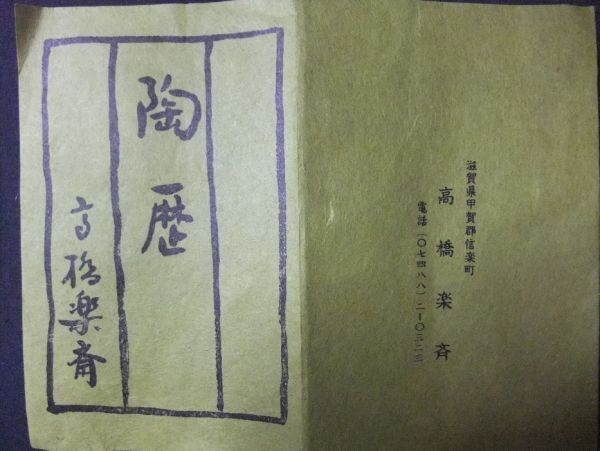 滋賀県甲賀郡信楽町
高橋楽斉
電話(〇七四八八)二ー〇三二三
陶歴
高橋楽斎